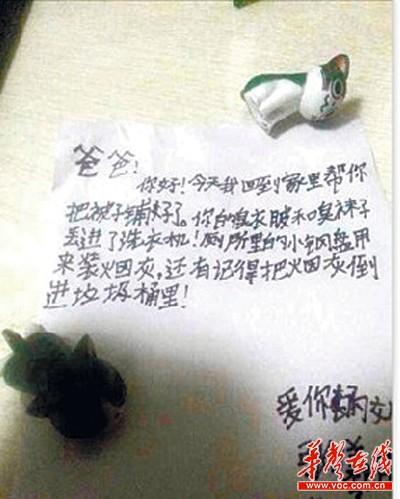 爸爸!
你好!今天我回到家里帮你
把被子铺好了。你的臭衣服和臭袜子
丢进了洗衣机!厕所里的小钢盘用
来装烟灰,还有记得把烟灰倒
进垃圾桶里!
爱你的女
华声在线
www.voc.com.cn